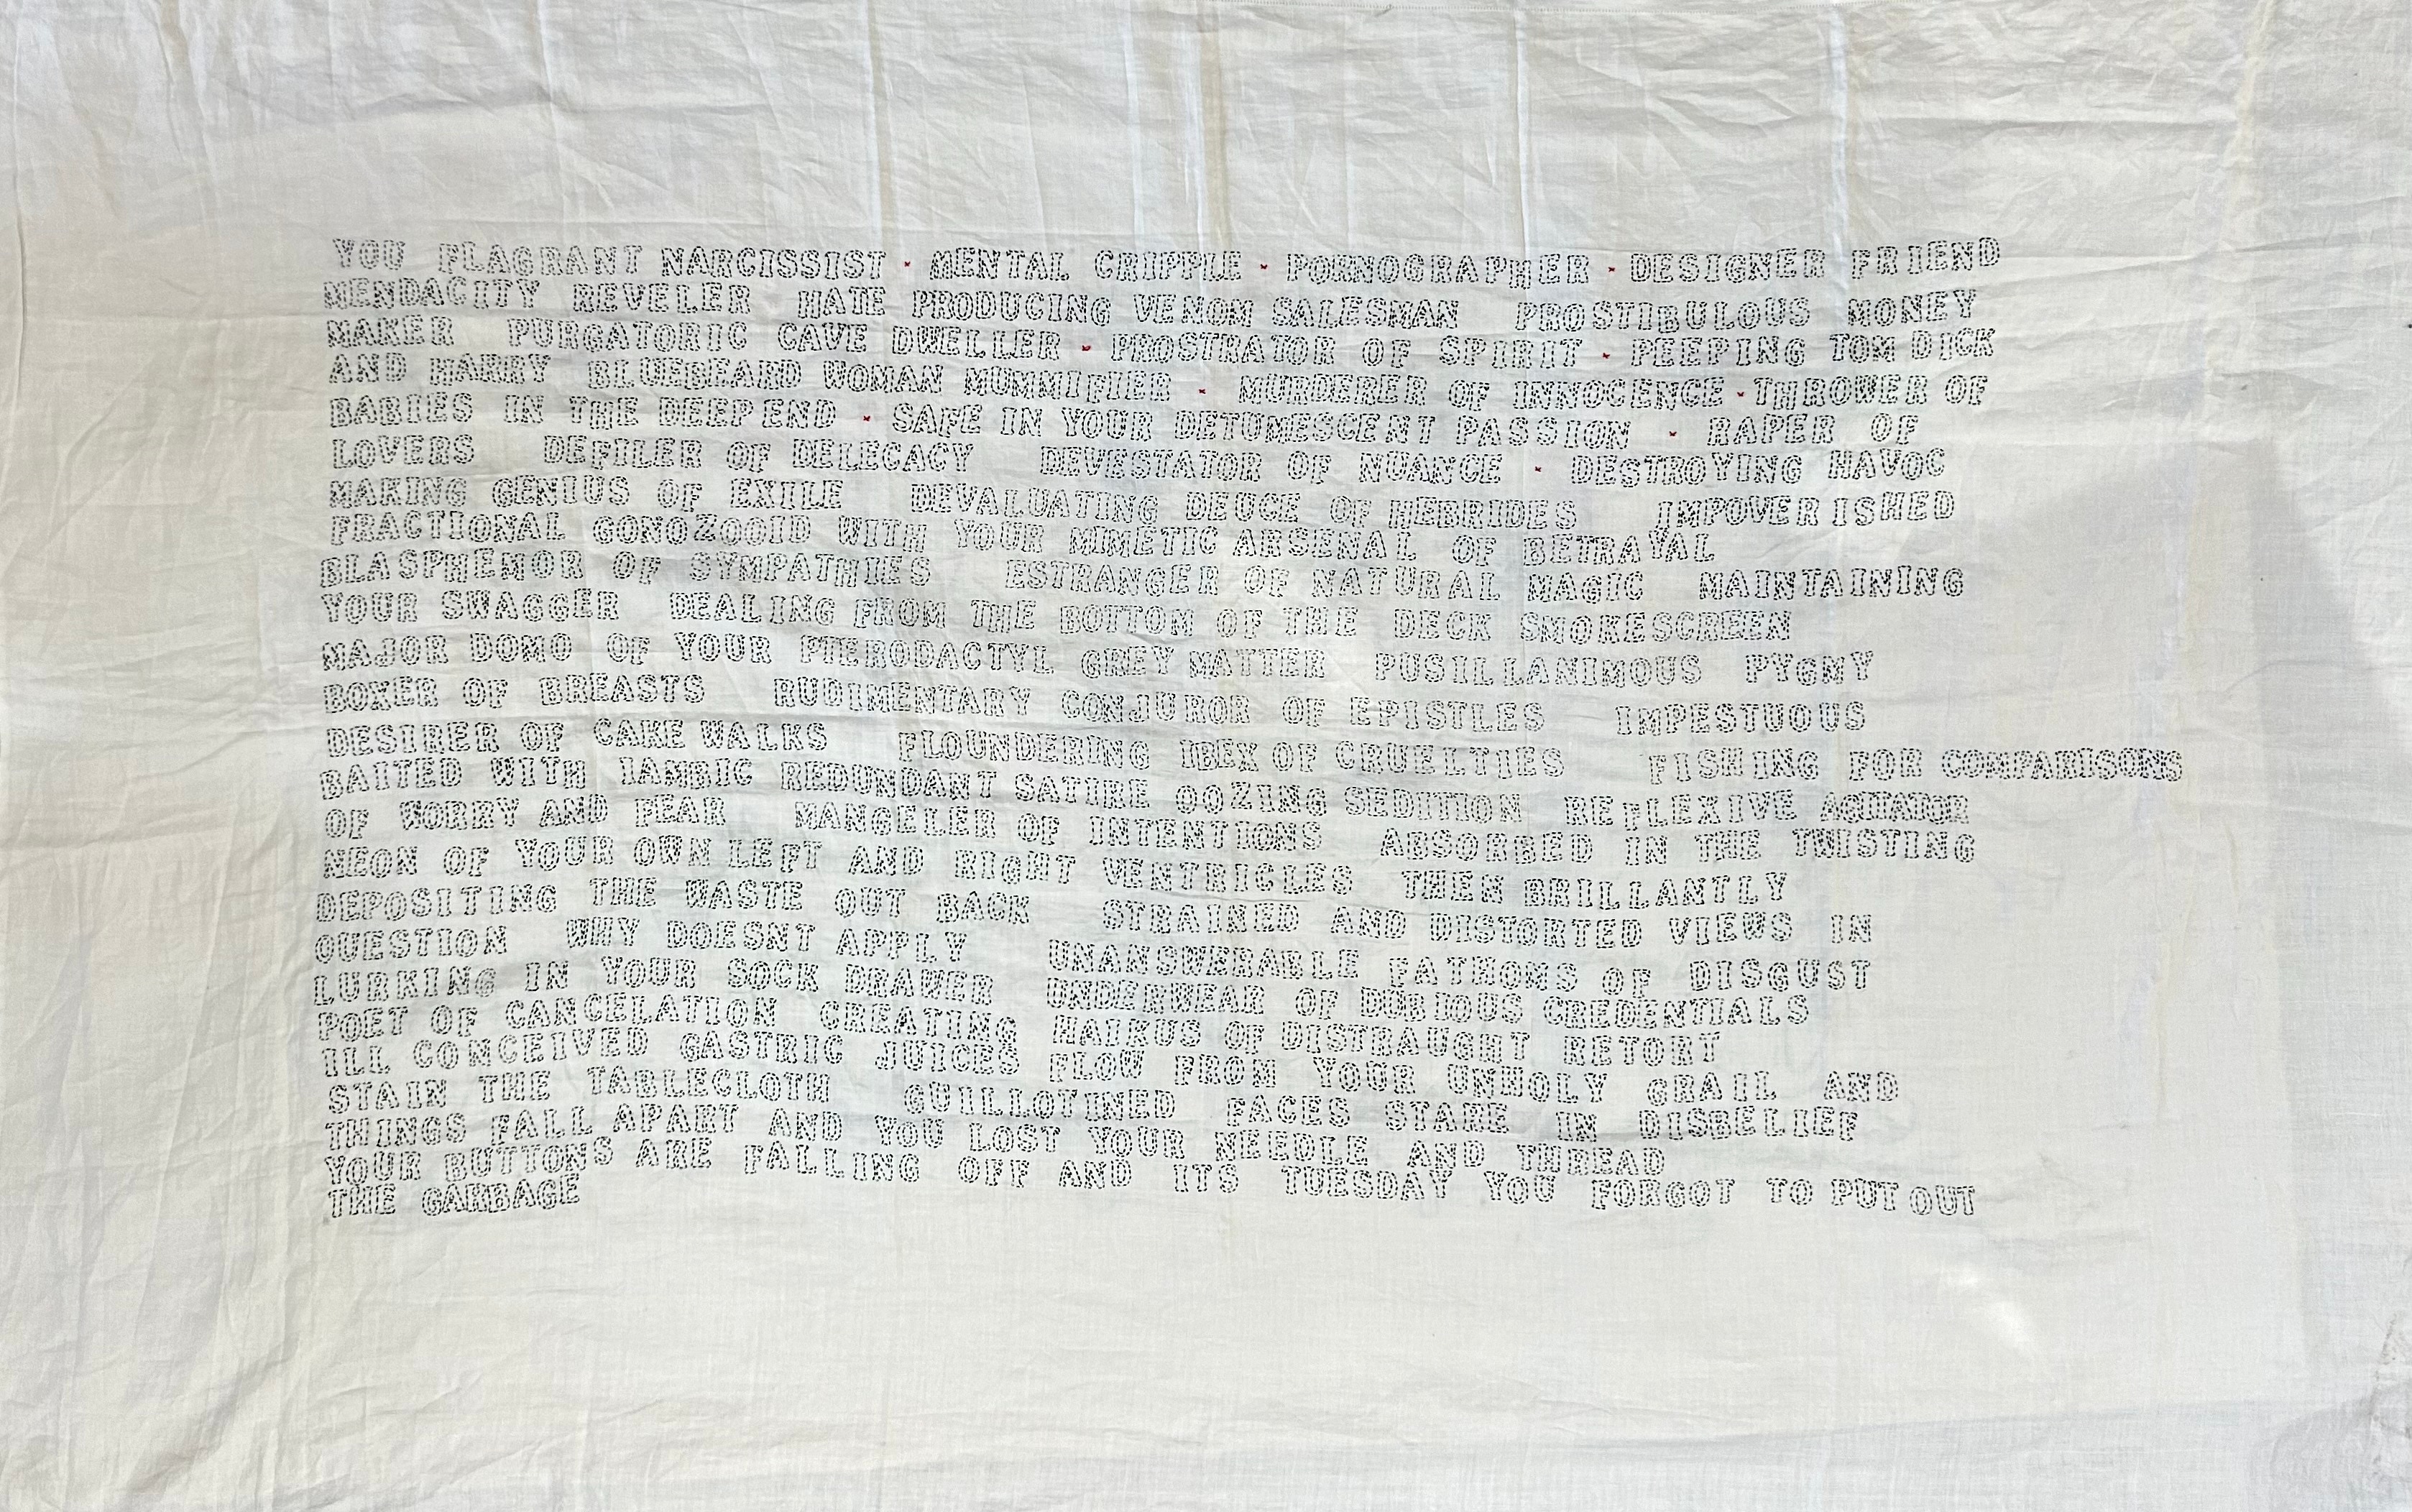 YOU FLAGRANT NARCISSIST · MENTAL CRIPPLE · PORNOGRAPHER · DESIGNER FRIEND
MENDACITY REVELER HATE PRODUCING VENOM SALESMAN PROSTIBULOUS MONEY
MAKER PURGATORIC CAVE DWELLER · PROSTRATOR OF SPIRIT · PEEPING TOM DICK
AND HARRY BLUEBEARD WOMAN MUMMIFIER · MURDERER OF INNOCENCE · THROWER OF
BABIES IN THE DEEP END · SAFE IN YOUR DETUMESCENT PASSION · RAPER OF
LOVERS DEFILER OF DELECACY DEVESTATOR OF NUANCE · DESTROYING HAVOC
MAKING GENIUS OF EXILE DEVALUATING DEUCE OF HEBRIDES IMPOVERISHED
FRACTIONAL GONOZOOID WITH YOUR MIMETIC ARSENAL OF BETRAYAL
BLASPHEMOR OF SYMPATHIES ESTRANGER OF NATURAL MAGIC MAINTAINING
YOUR SWAGGER DEALING FROM THE BOTTOM OF THE DECK SMOKESCREEN
MAJOR DOMO OF YOUR PTERODACTYL GREY MATTER PUSILLANIMOUS PYGMY
BOXER OF BREASTS RUDIMENTARY CONJUROR OF EPISTLES IMPESTUOUS
DESIRER OF CAKE WALKS FLOUNDERING IBEX OF CRUELTIES FISHING FOR COMPARISONS
BAITED WITH IAMBIC REDUNDANT SATIRE OOZING SEDITION REFLEXIVE AGITATOR
OF WORRY AND FEAR MANGELER OF INTENTIONS ABSORBED IN THE TWISTING
NEON OF YOUR OWN LEFT AND RIGHT VENTRICLES THEN BRILLANTLY
DEPOSITING THE WASTE OUT BACK STRAINED AND DISTORTED VIEWS IN
QUESTION WHY DOESNT APPLY UNANSWERABLE FATHOMS OF DISGUST
LURKING IN YOUR SOCK DRAWER UNDERWEAR OF DUBIOUS CREDENTIALS
POET OF CANCELATION CREATING HAIKUS OF DISTRAUGHT RETORT
ILL CONCEIVED GASTRIC JUICES FLOW FROM YOUR UNHOLY GRAIL AND
STAIN THE TABLECLOTH GUILLOTINED FACES STARE IN DISBELIEF
THINGS FALL APART AND YOU LOST YOUR NEEDLE AND THREAD
YOUR BUTTONS ARE FALLING OFF AND ITS TUESDAY YOU FORGOT TO PUT OUT
THE GARBAGE